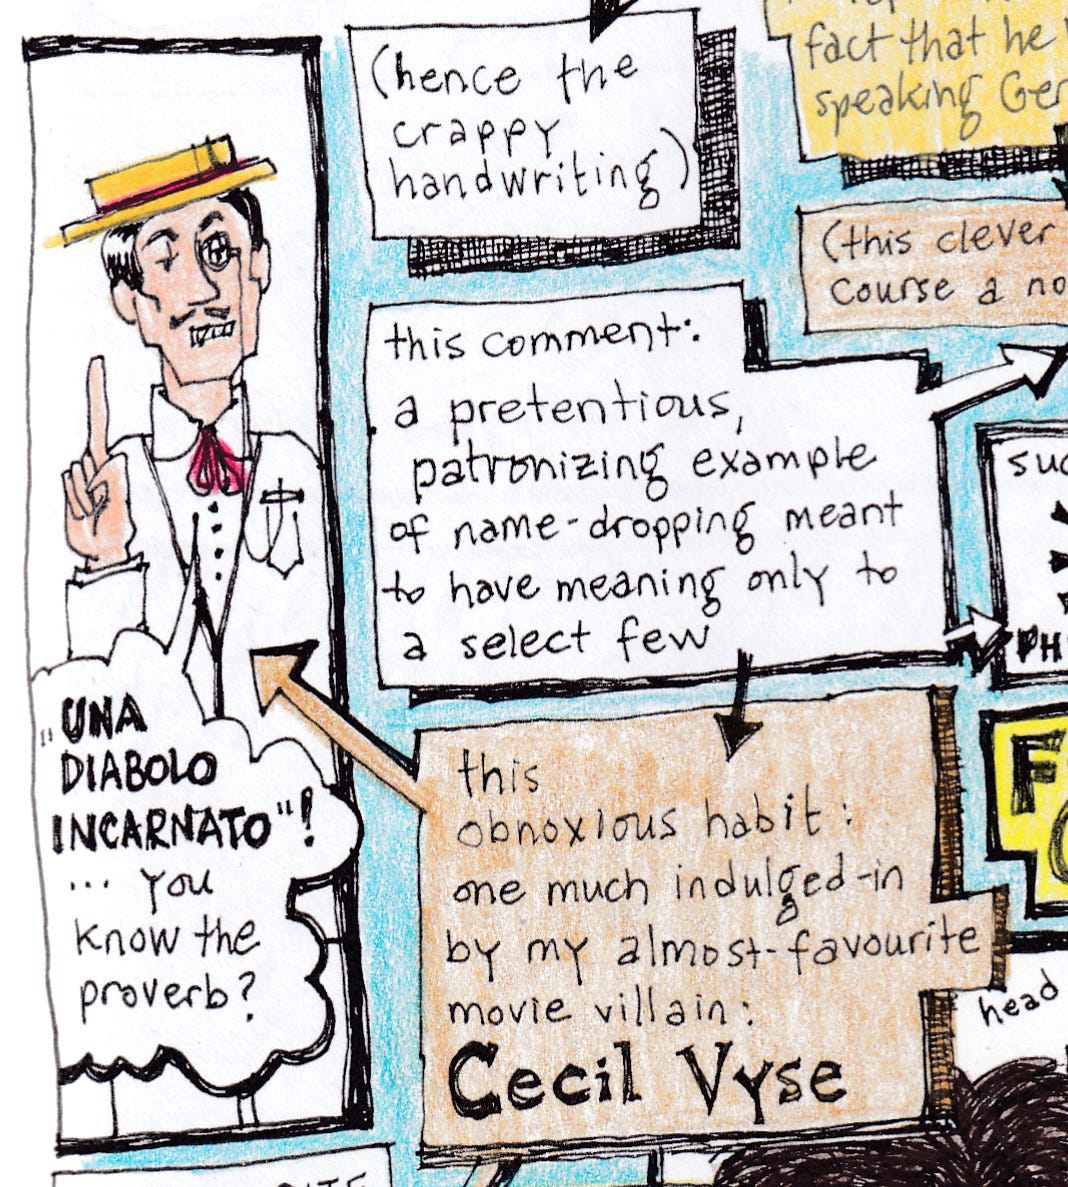 (hence the
crappy
handwriting)
fact that he
speaking Ger
(this clever
course a no
this comment:
a pretentious,
patronizing example
of name-dropping meant
to have meaning only to
a select few
"UNA
DIABOLO
INCARNATO"!
... you
know the
proverb?
this
obnoxious habit:
one much indulged-in
by my almost-favourite
movie villain:
Cecil Vyse
suc
PH
F
head